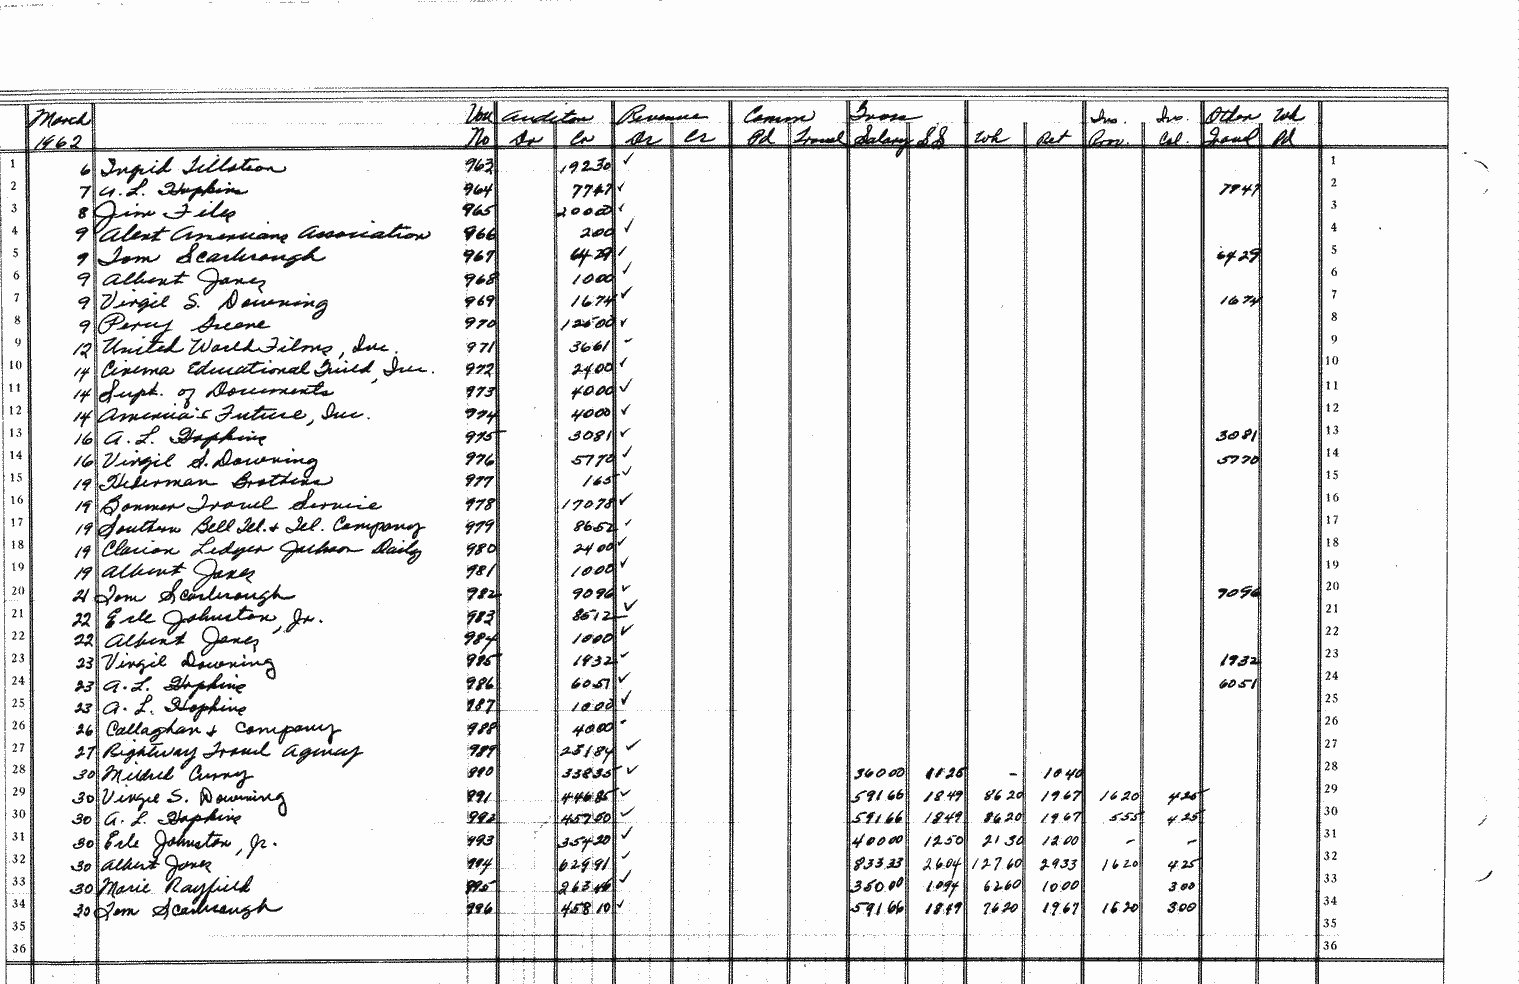 March Vou Auditor Revenue Comm Gross Ins. Ins. Other Wh
1962 No Dr Cr Dr Cr Pd Travel Salary SS Wh Ret Prov. Col. Travel Pd
1 6 Ingrid Tillotson 963 192 30 ✓ 1
2 7 A. L. Hopkins 964 77 47 ✓ 77 47 2
3 8 Jim Files 965 200 00 ✓ 3
4 9 Alert Americans Association 966 2 00 ✓ 4
5 9 Tom Scarbrough 967 64 29 ✓ 64 29 5
6 9 Albert Jones 968 10 00 ✓ 6
7 9 Virgil S. Downing 969 16 74 ✓ 16 74 7
8 9 Percy Greene 970 125 00 ✓ 8
9 12 United World Films, Inc. 971 36 61 ✓ 9
10 14 Cinema Educational Guild, Inc. 972 24 00 ✓ 10
11 14 Supt. of Documents 973 40 00 ✓ 11
12 14 America's Future, Inc. 974 40 00 ✓ 12
13 16 A. L. Hopkins 975 30 81 ✓ 30 81 13
14 16 Virgil S. Downing 976 57 70 ✓ 57 70 14
15 19 Hederman Brothers 977 1 65 ✓ 15
16 19 Bonner Travel Service 978 170 78 ✓ 16
17 19 Southern Bell Tel. & Tel. Company 979 86 52 ✓ 17
18 19 Clarion Ledger Jackson Daily 980 24 00 ✓ 18
19 19 Albert Jones 981 10 00 ✓ 19
20 21 Tom Scarbrough 982 90 96 ✓ 90 96 20
21 22 Erle Johnston, Jr. 983 85 12 ✓ 21
22 22 Albert Jones 984 10 00 ✓ 22
23 23 Virgil Downing 985 19 32 ✓ 19 32 23
24 23 A. L. Hopkins 986 60 51 ✓ 60 51 24
25 23 A. L. Hopkins 987 10 00 ✓ 25
26 26 Callaghan & Company 988 40 00 ✓ 26
27 27 Rightway Travel Agency 989 231 84 ✓ 27
28 30 Mildred Curry 990 338 35 ✓ 360 00 11 25 - 10 40 28
29 30 Virgil S. Downing 991 446 85 ✓ 591 66 18 49 86 20 19 67 16 20 4 25 29
30 30 A. L. Hopkins 992 457 50 ✓ 591 66 18 49 86 20 19 67 5 55 4 25 30
31 30 Erle Johnston, Jr. 993 354 20 ✓ 400 00 12 50 21 30 12 00 - - 31
32 30 Albert Jones 994 629 91 ✓ 833 33 26 04 127 60 29 33 16 20 4 25 32
33 30 Marie Rayfield 995 263 46 ✓ 350 00 10 94 62 60 10 00 3 00 33
34 30 Tom Scarbrough 996 458 10 ✓ 591 66 18 49 76 20 19 67 16 20 3 00 34
35 35
36 36